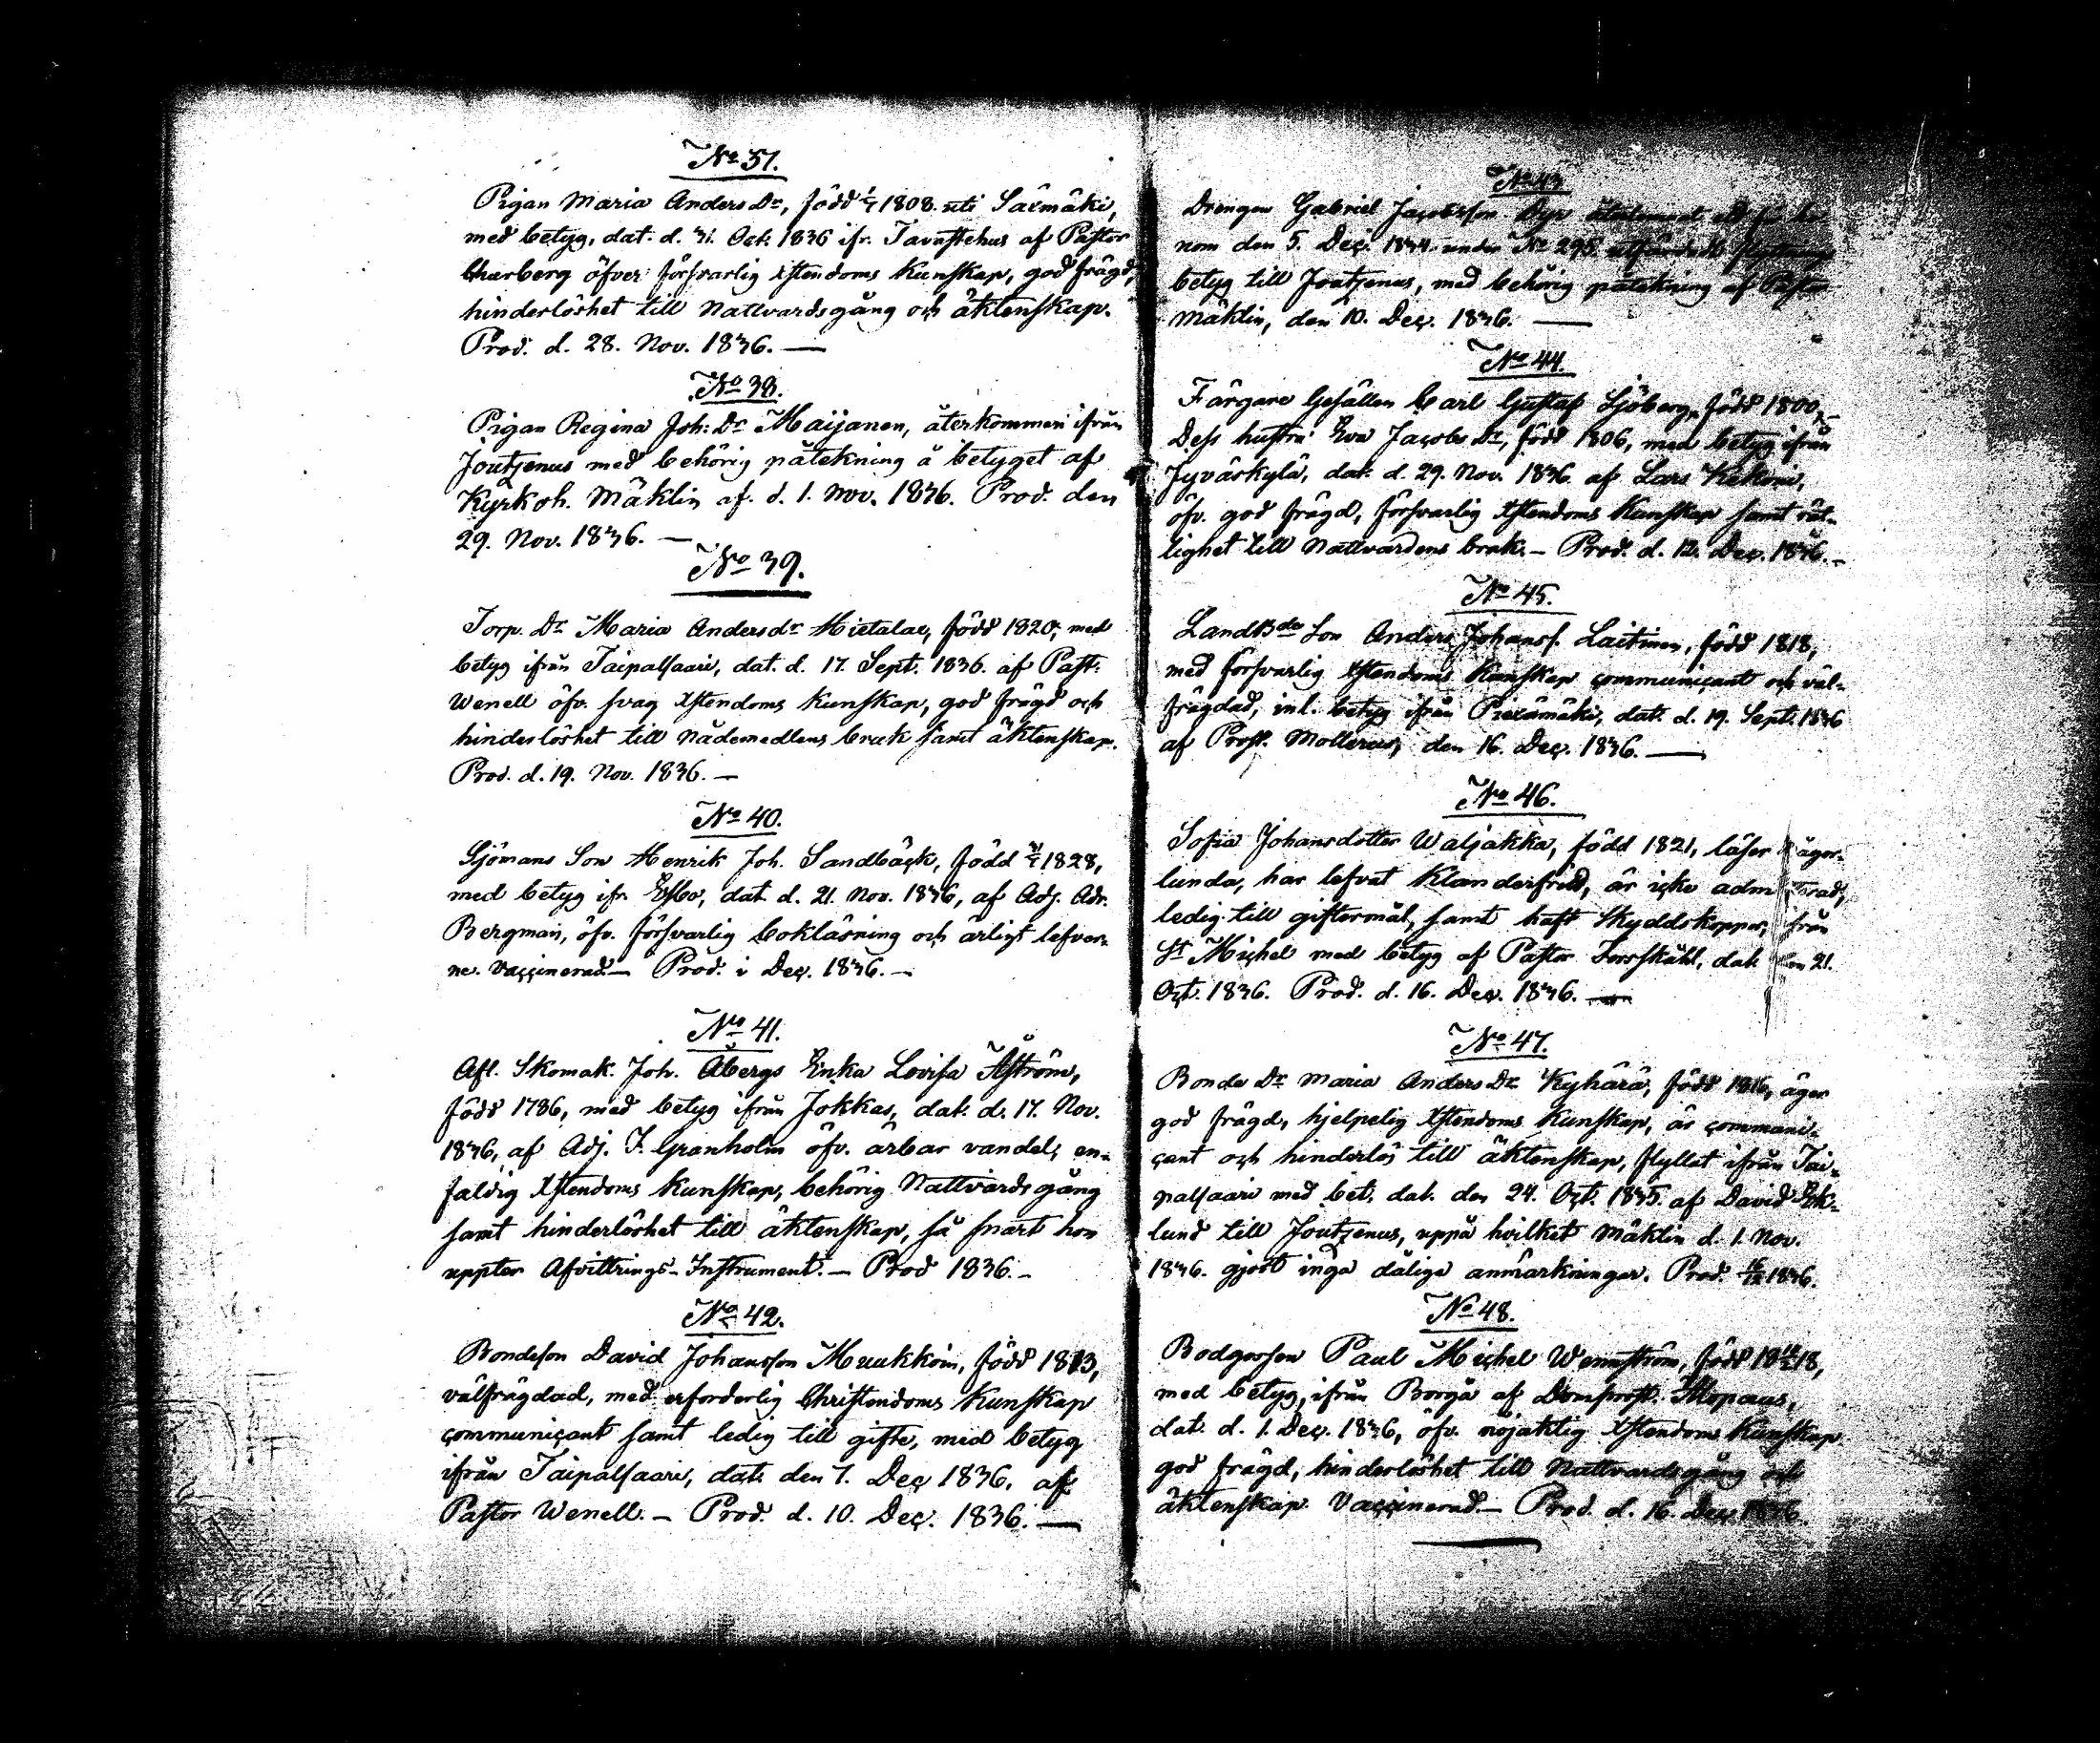 No 37.
Pigan Maria Anders Dr, född 1/7 1808. uti Säkmäki,
med betyg, dat. d. 31. Oct. 1836 ifr. Tavastehus af Pastor
Churberg öfver försvarlig Xstendoms Kunskap, god frägd,
hinderlöshet till Nattvardsgång och äktenskap.
Prod. d. 28. Nov. 1836. —
No 38.
Pigan Regina Joh: Dr Maijanen, återkommen ifrån
Joutzenus med behörig påtekning å betyget af
Kyrkoh. Mäklin af. d. 1. Nov. 1836. Prod. den
29. Nov. 1836. —
No 39.
Torp. Dr Maria Andersdr Hietalae, född 1820, med
betyg ifrån Taipalsaari, dat. d. 17. Sept. 1836. af Past:
Wenell öfv. svag Xstendoms Kunskap, god frägd och
hinderlöshet till nådemedlens bruk samt äktenskap.
Prod. d. 19. Nov. 1836. —
No 40.
Sjömans Son Henrik Joh. Sandbäck, född 1828,
med betyg ifr. Esbo, dat. d. 21. Nov. 1836, af Adj. Adr.
Bergman, öfv. försvarlig bokläsning och ärligt lefver-
ne. Vaccinerad. — Prod. i Dec. 1836. —
No 41.
Afl. Skomak. Joh. Åbergs Enka Lovisa Åström,
född 1786, med betyg ifrån Jokkas, dat. d. 17. Nov.
1836, af Adj. F. Granholm öfv. ärbar vandel, en-
faldig Xstendoms Kunskap, behörig Nattvardsgång
samt hinderlöshet till äktenskap, så snart hon
uppter Afvittrings-Instrument. — Prod 1836. —
No 42.
Bondeson David Johansson Muukkoin, född 1813,
välfrägdad, med erforderlig Christendoms Kunskap
communicant samt ledig till gifte, med betyg
ifrån Taipalsaari, dat. den 7. Dec 1836. af
Pastor Wenell. — Prod. d. 10. Dec. 1836. —
No 43.
Drengen Gabriel Jacobsson
nom den 5. Dec. 1834. under No 295.
betyg till Joutzenus, med behörig påtekning af Pastor
Mäklin, den 10. Dec. 1836. —
No 44.
Färgare Gesällen Carl Gustaf Sjöberg, född 1800, —
Dess hustru Eva Jacobs Dr, född 1806, med betyg ifrån
Jyväskylä, dat. d. 29. Nov. 1836. af Lars Kekoni,
öfv. god frägd, försvarlig Xstendoms Kunskap samt rät-
lighet till Nattvardens bruk. — Prod. d. 12. Dec. 1836. —
No 45.
Landbde Son Anders Johanss. Laitinen, född 1818,
med försvarlig Xstendoms Kunskap communicant och väl-
frägdad, inl. betyg ifrån Piexämäki, dat. d. 19. Sept. 1836
af Prost. Mollerus, den 16. Dec. 1836. —
No 46.
Sofia Johansdotter Waljakka, född 1821, läser någor-
lunda, har lefvat Klanderfritt, är icke adm
ledig till giftermål, samt haft Skyddskoppor, ifrån
St Michel med betyg af Pastor Forsskåhl, dat. den 21.
Oct. 1836. Prod. d. 16. Dec. 1836. —
No 47.
Bonde Dr Maria Anders Dr Kyhärä, född 1816, äger
god frägd, hjelpelig Xstendoms Kunskap, är communi-
cant och hinderlös till äktenskap, flyttat ifrån Tai-
palsaari med bet. dat. den 24. Oct. 1835. af David Ek-
lund till Joutzenus, uppå hvilket Mäklin d. 1. Nov.
1836. gjort inga dålige anmärkningar. Prod. 16/12 1836.
No 48.
Bodgossen Paul Michel Wennström, född 1818,
med betyg, ifrån Borgå af Domprost. Alopaeus,
dat. d. 1. Dec. 1836, öfv. nöjaktlig Xstendoms Kunskap
god frägd, hinderlöshet till Nattvardsgång och
äktenskap. Vaccinerad. — Prod. d. 16. Dec. 1836.